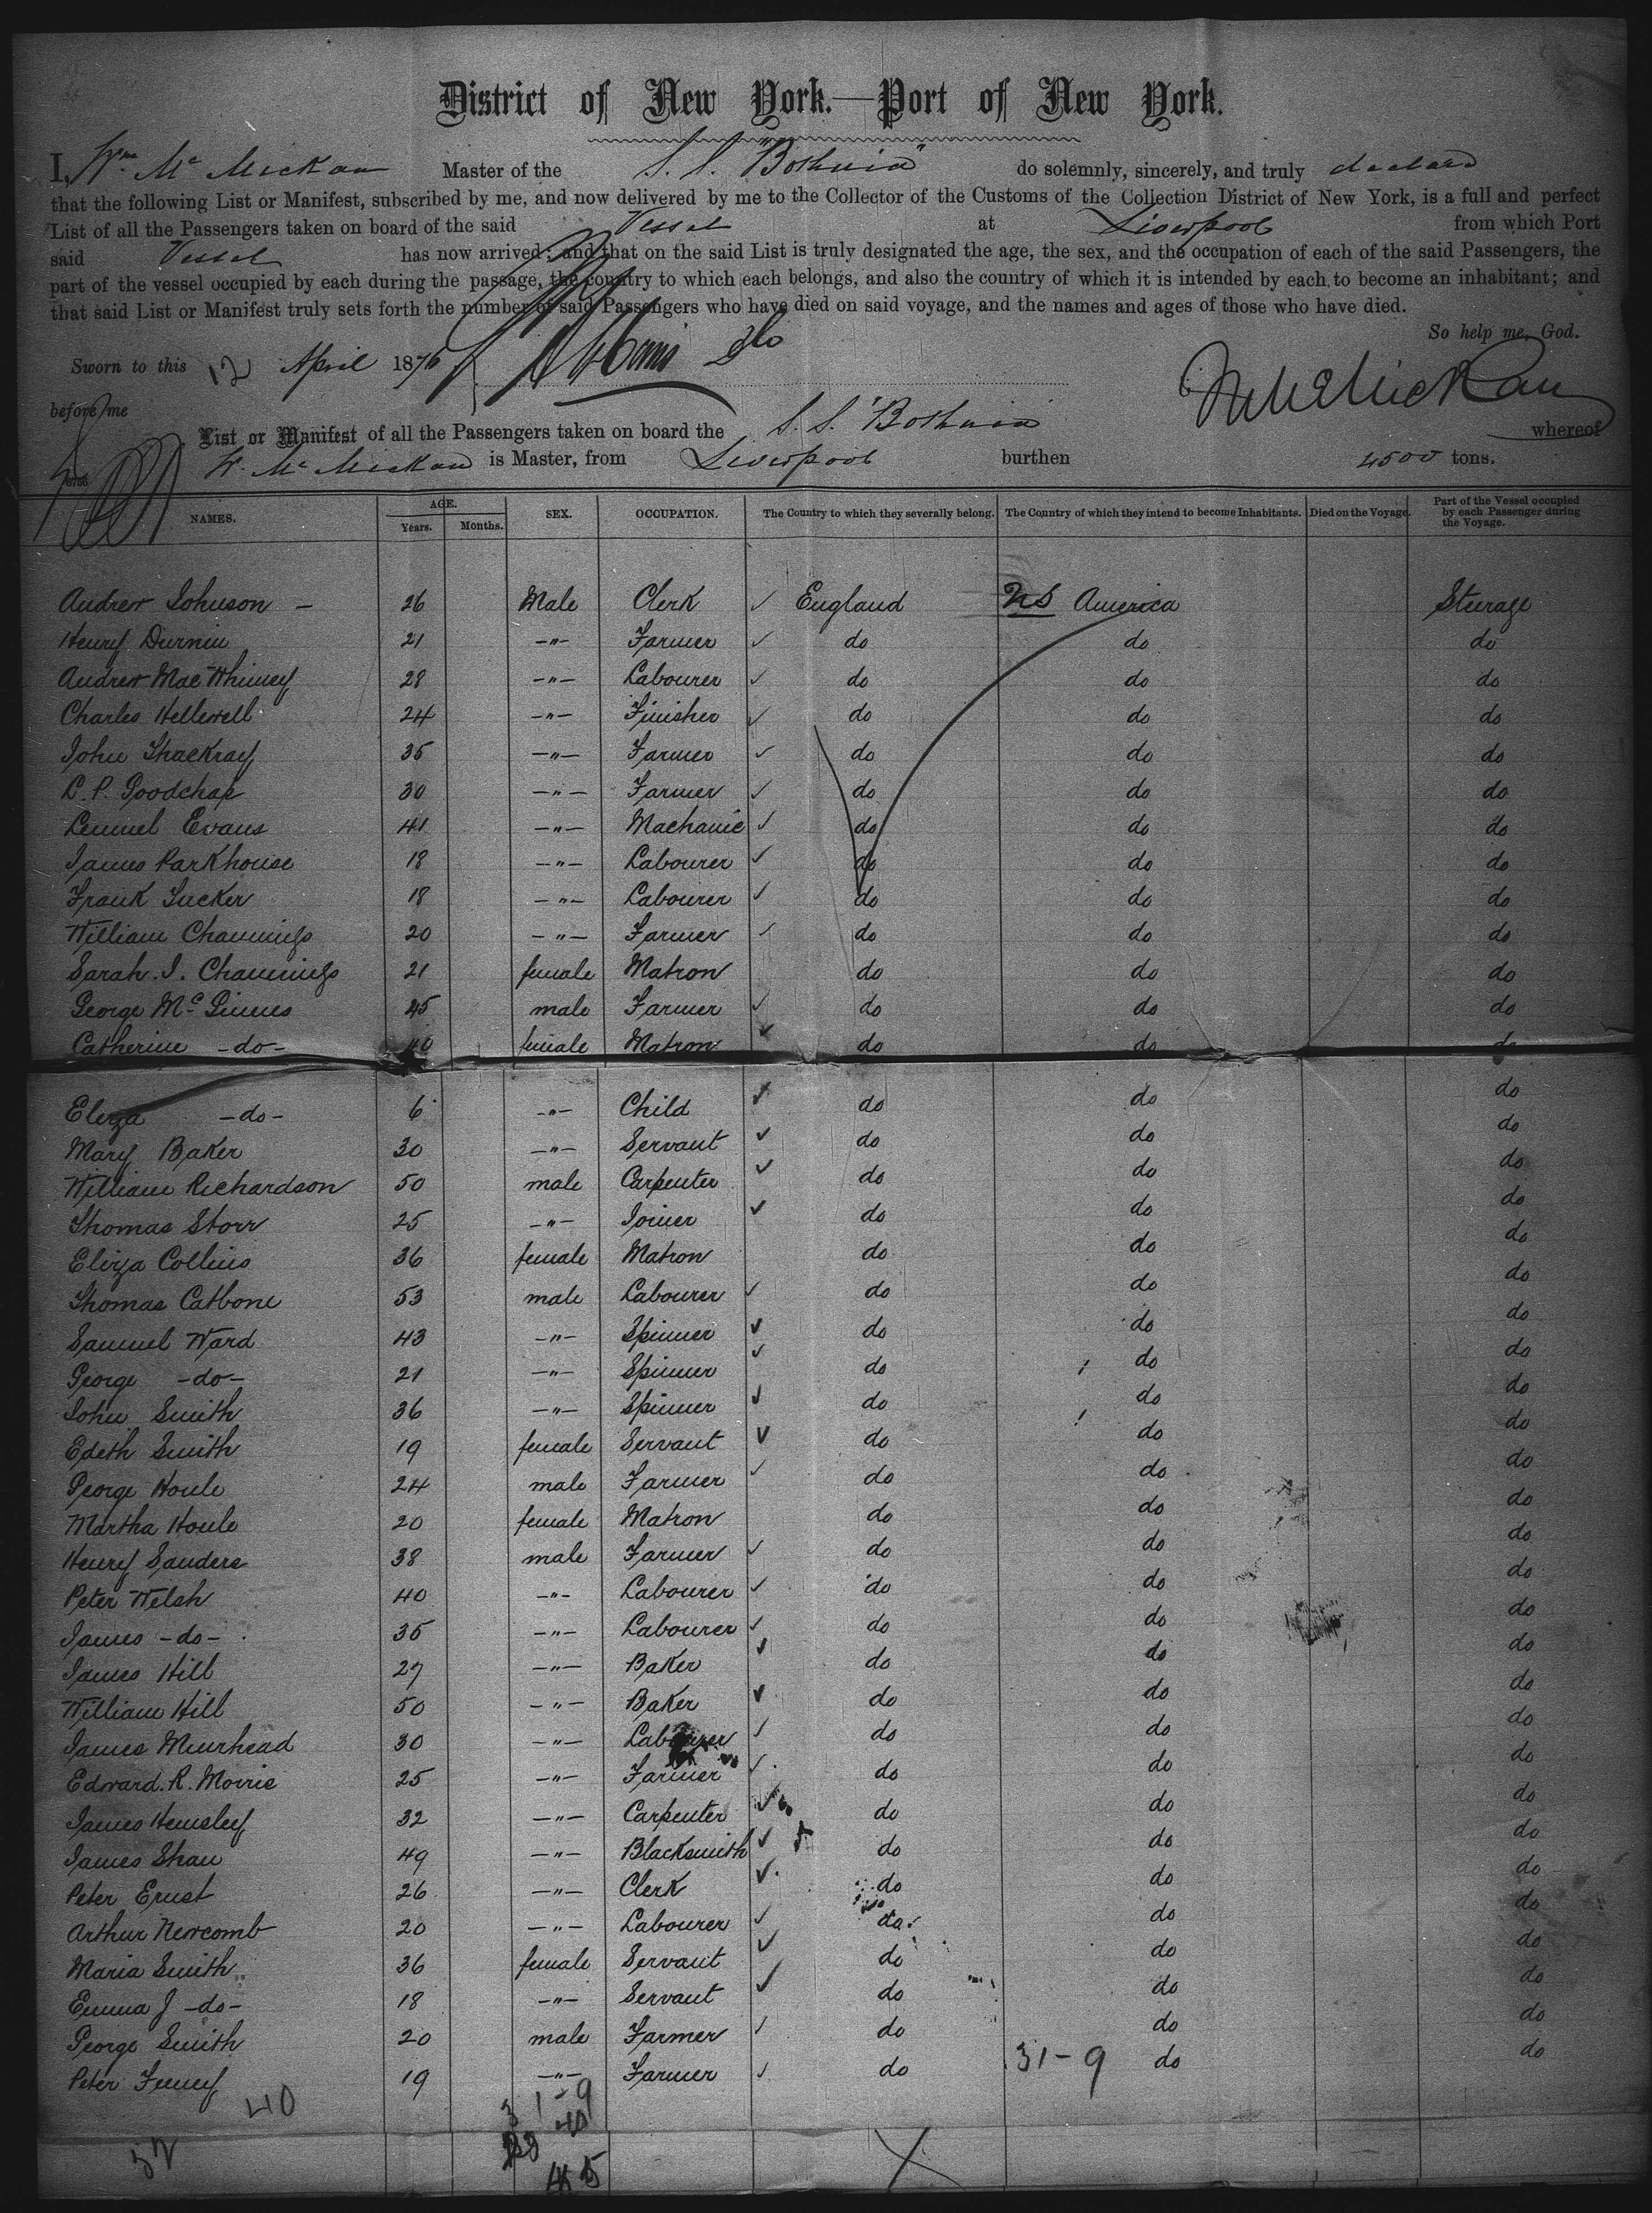 District of New York.—Port of New York.
I, Wm Mc Mickan Master of the S. S. "Bothnia" do solemnly, sincerely, and truly declare
that the following List or Manifest, subscribed by me, and now delivered by me to the Collector of the Customs of the Collection District of New York, is a full and perfect
List of all the Passengers taken on board of the said Vessel at Liverpool from which Port
said Vessel has now arrived; and that on the said List is truly designated the age, the sex, and the occupation of each of the said Passengers, the
part of the vessel occupied by each during the passage, the country to which each belongs, and also the country of which it is intended by each to become an inhabitant; and
that said List or Manifest truly sets forth the number of said Passengers who have died on said voyage, and the names and ages of those who have died.
So help me, God.
Sworn to this 12 April 1876
before me
W McMickan
List or Manifest of all the Passengers taken on board the S. S. "Bothnia" whereof
W. Mc Mickan is Master, from Liverpool burthen 4500 tons.
NAMES. AGE. Years. Months. SEX. OCCUPATION. The Country to which they severally belong. The Country of which they intend to become Inhabitants. Died on the Voyage. Part of the Vessel occupied by each Passenger during the Voyage.
Andrew Johnson — 26 Male Clerk ✓ England US America Steerage
Henry Durnin 21 —"— Farmer ✓ do do do
Andrew MacWhinney 28 —"— Labourer ✓ do do do
Charles Hellewell 24 —"— Finisher ✓ do do do
John Thackray 35 —"— Farmer ✓ do do do
L. P. Goodchap 30 —"— Farmer ✓ do do do
Lemuel Evans 41 —"— Machanic ✓ do do do
James Parkhouse 18 —"— Labourer ✓ do do do
Frank Tucker 18 —"— Labourer ✓ do do do
William Channings 20 —"— Farmer ✓ do do do
Sarah. J. Channings 21 female Matron do do do
George Mc Ginnes 45 male Farmer ✓ do do do
Catherine —do— 40 female Matron ✓ do do do
Eliza —do— 6 —"— Child ✓ do do do
Mary Baker 30 —"— Servant ✓ do do do
William Richardson 50 male Carpenter ✓ do do do
Thomas Storr 25 —"— Joiner ✓ do do do
Eliza Collins 36 female Matron do do do
Thomas Catbone 53 male Labourer ✓ do do do
Samuel Ward 43 —"— Spinner ✓ do do do
George —do— 21 —"— Spinner ✓ do do do
John Smith 36 —"— Spinner ✓ do do do
Edith Smith 19 female Servant ✓ do do do
George Houle 24 male Farmer ✓ do do do
Martha Houle 20 female Matron do do do
Henry Sanders 38 male Farmer ✓ do do do
Peter Welsh 40 —"— Labourer ✓ do do do
James —do— 35 —"— Labourer ✓ do do do
James Hill 27 —"— Baker ✓ do do do
William Hill 50 —"— Baker ✓ do do do
James Muirhead 30 —"— Labourer ✓ do do do
Edward. R. Morris 25 —"— Farmer ✓ do do do
James Hemsley 32 —"— Carpenter ✓ do do do
James Shaw 49 —"— Blacksmith ✓ do do do
Peter Ernst 26 —"— Clerk ✓ do do do
Arthur Newcomb 20 —"— Labourer ✓ do do do
Maria Smith 36 female Servant ✓ do do do
Emma J —do— 18 —"— Servant ✓ do do do
George Smith 20 male Farmer ✓ do do do
Peter Finney 19 —"— Farmer ✓ do 31-9 do do
40